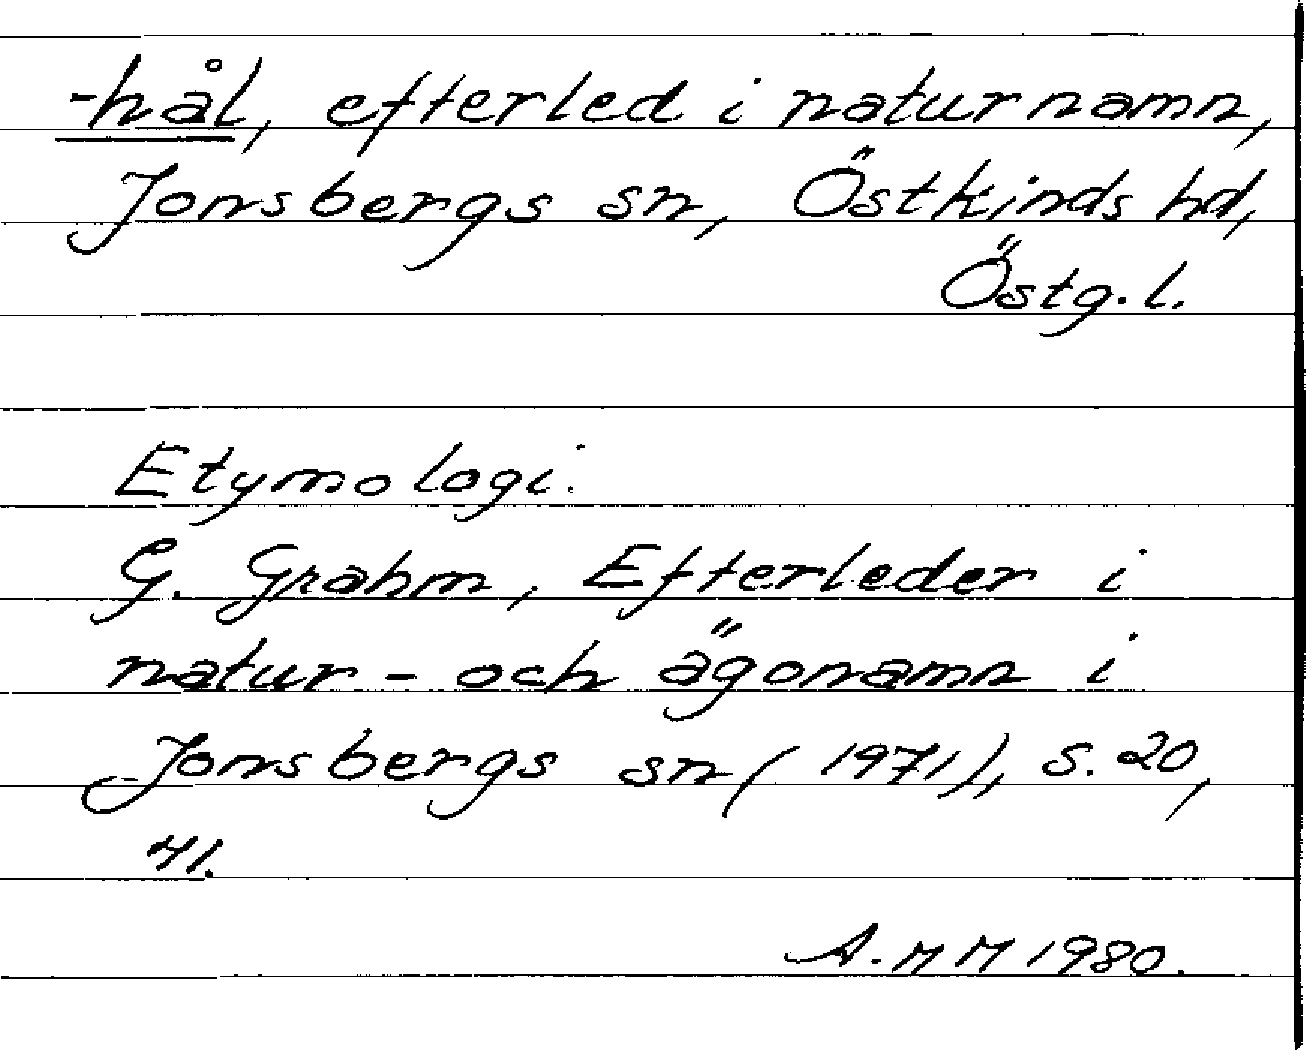 -hål, efterled i naturnamn,
Jonsbergs sn, Östkinds hd,
Östg.l.
Etymologi.
G. Grahm, Efterleder i
natur- och ägonamn i
Jonsbergs sn (1971), s. 20,
41.
A. M M 1980.